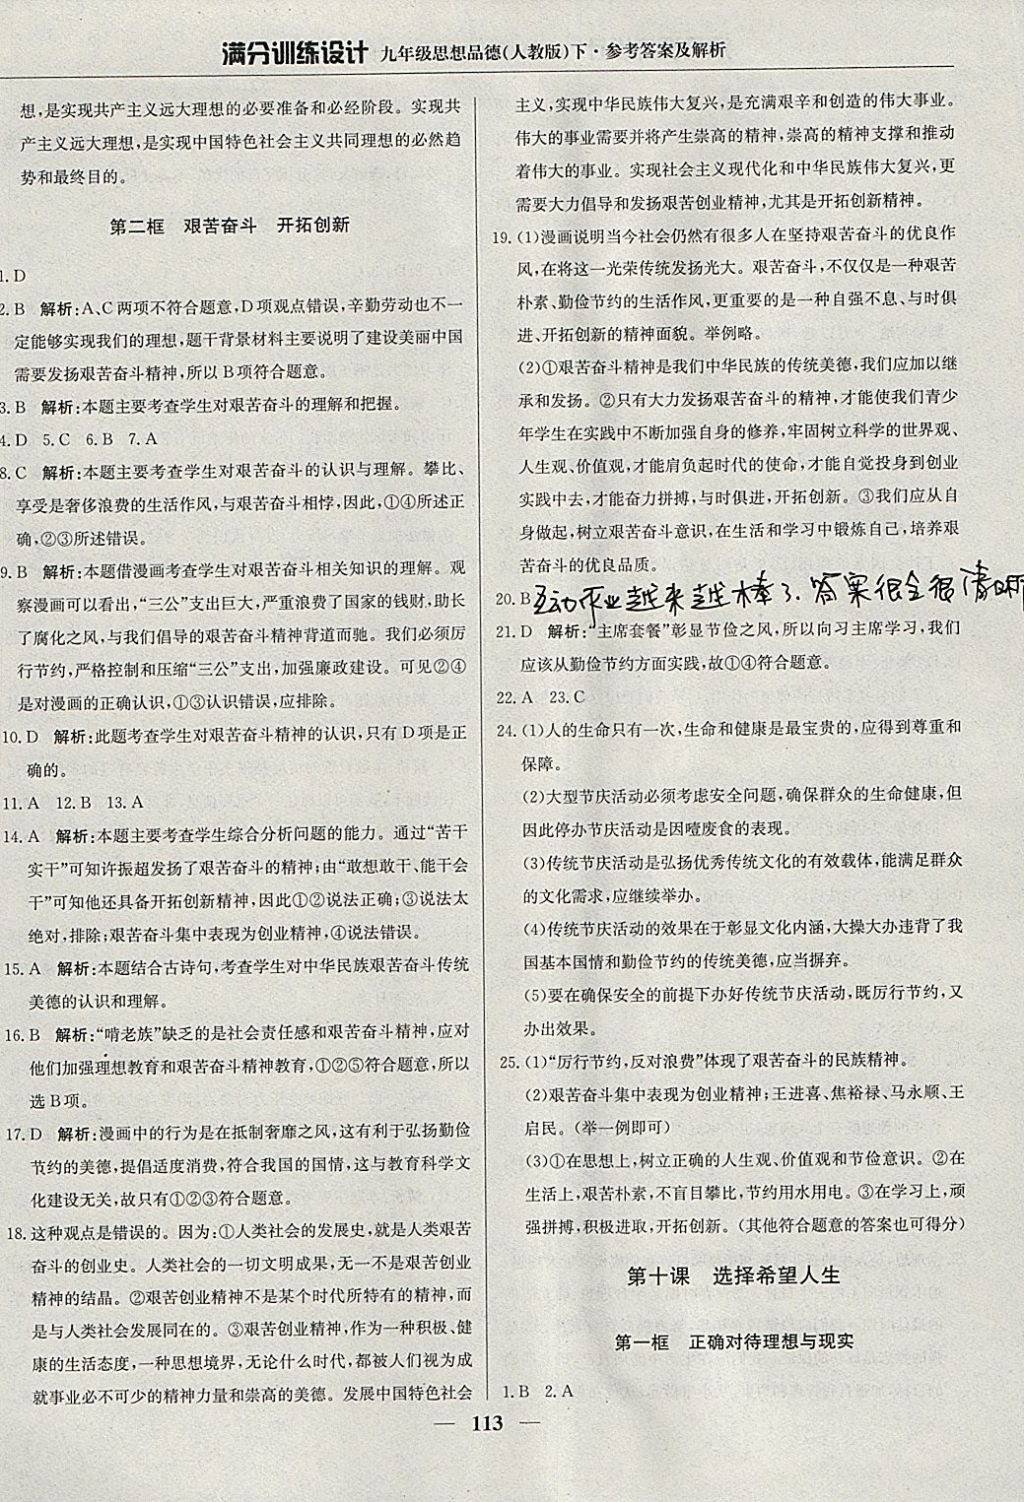 满分训练设计 九年级思想品德(人教版)下·参考答案及解析
想,是实现共产主义远大理想的必要准备和必经阶段。实现共
产主义远大理想,是实现中国特色社会主义共同理想的必然趋
势和最终目的。
第二框 艰苦奋斗 开拓创新
1. D
2. B 解析:A、C两项不符合题意,D项观点错误,辛勤劳动也不一
定能够实现我们的理想,题干背景材料主要说明了建设美丽中国
需要发扬艰苦奋斗精神,所以B项符合题意。
3. B 解析:本题主要考查学生对艰苦奋斗的理解和把握。
4. D 5. C 6. B 7. A
8. C 解析:本题主要考查学生对艰苦奋斗的认识与理解。攀比、
享受是奢侈浪费的生活作风,与艰苦奋斗相悖,因此,①④所述正
确,②③所述错误。
9. B 解析:本题借漫画考查学生对艰苦奋斗相关知识的理解。观
察漫画可以看出,“三公”支出巨大,严重浪费了国家的钱财,助长
了腐化之风,与我们倡导的艰苦奋斗精神背道而驰。我们必须厉
行节约,严格控制和压缩“三公”支出,加强廉政建设。可见②④
是对漫画的正确认识,①③认识错误,应排除。
10. D 解析:此题考查学生对艰苦奋斗精神的认识,只有D项是正
确的。
11. A 12. B 13. A
14. A 解析:本题主要考查学生综合分析问题的能力。通过“苦干
实干”可知许振超发扬了艰苦奋斗的精神;由“敢想敢干、能干会
干”可知他还具备开拓创新精神,因此①②说法正确;③说法太
绝对,排除;艰苦奋斗集中表现为创业精神,④说法错误。
15. A 解析:本题结合古诗句,考查学生对中华民族艰苦奋斗传统
美德的认识和理解。
16. B 解析:“啃老族”缺乏的是社会责任感和艰苦奋斗精神,应对
他们加强理想教育和艰苦奋斗精神教育,①②⑤符合题意,所以
选B项。
17. D 解析:漫画中的行为是在抵制奢靡之风,这有利于弘扬勤俭
节约的美德,提倡适度消费,符合我国的国情,这与教育科学文
化建设无关,故只有①②③符合题意。
18. 这种观点是错误的。因为:①人类社会的发展史,就是人类艰苦
奋斗的创业史。人类社会的一切文明成果,无一不是艰苦创业
精神的结晶。②艰苦创业精神不是某个时代所特有的精神,而
是与人类社会发展同在的。③艰苦创业精神,作为一种积极、健
康的生活态度,一种思想境界,无论什么时代,都被人们视为成
就事业必不可少的精神力量和崇高的美德。发展中国特色社会
主义,实现中华民族伟大复兴,是充满艰辛和创造的伟大事业。
伟大的事业需要并将产生崇高的精神,崇高的精神支撑和推动
着伟大的事业。实现社会主义现代化和中华民族伟大复兴,更
需要大力倡导和发扬艰苦创业精神,尤其是开拓创新精神。
19. (1)漫画说明当今社会仍然有很多人在坚持艰苦奋斗的优良作
风,在将这一光荣传统发扬光大。艰苦奋斗,不仅仅是一种艰苦
朴素、勤俭节约的生活作风,更重要的是一种自强不息、与时俱
进、开拓创新的精神面貌。举例略。
(2)①艰苦奋斗精神是我们中华民族的传统美德,我们应加以继
承和发扬。②只有大力发扬艰苦奋斗的精神,才能使我们青少
年学生在实践中不断加强自身的修养,牢固树立科学的世界观、
人生观、价值观,才能肩负起时代的使命,才能自觉投身到创业
实践中去,才能奋力拼搏,与时俱进,开拓创新。③我们应从自
身做起,树立艰苦奋斗意识,在生活和学习中锻炼自己,培养艰
苦奋斗的优良品质。
20. B 互动作业越来越棒了.答案很全很清晰
21. D 解析:“主席套餐”彰显节俭之风,所以向习主席学习,我们
应该从勤俭节约方面实践,故①④符合题意。
22. A 23. C
24. (1)人的生命只有一次,生命和健康是最宝贵的,应得到尊重和
保障。
(2)大型节庆活动必须考虑安全问题,确保群众的生命健康,但
因此停办节庆活动是因噎废食的表现。
(3)传统节庆活动是弘扬优秀传统文化的有效载体,能满足群众
的文化需求,应继续举办。
(4)传统节庆活动的效果在于彰显文化内涵,大操大办违背了我
国基本国情和勤俭节约的传统美德,应当摒弃。
(5)要在确保安全的前提下办好传统节庆活动,既厉行节约,又
办出效果。
25. (1)“厉行节约,反对浪费”体现了艰苦奋斗的民族精神。
(2)艰苦奋斗集中表现为创业精神;王进喜、焦裕禄、马永顺、王
启民。(举一例即可)
(3)①在思想上,树立正确的人生观、价值观和节俭意识。②在
生活上,艰苦朴素,不盲目攀比,节约用水用电。③在行动上,顽
强拼搏,积极进取,开拓创新。(其他符合题意的答案也可得分)
第十课 选择希望人生
第一框 正确对待理想与现实
1. B 2. A
— 113 —